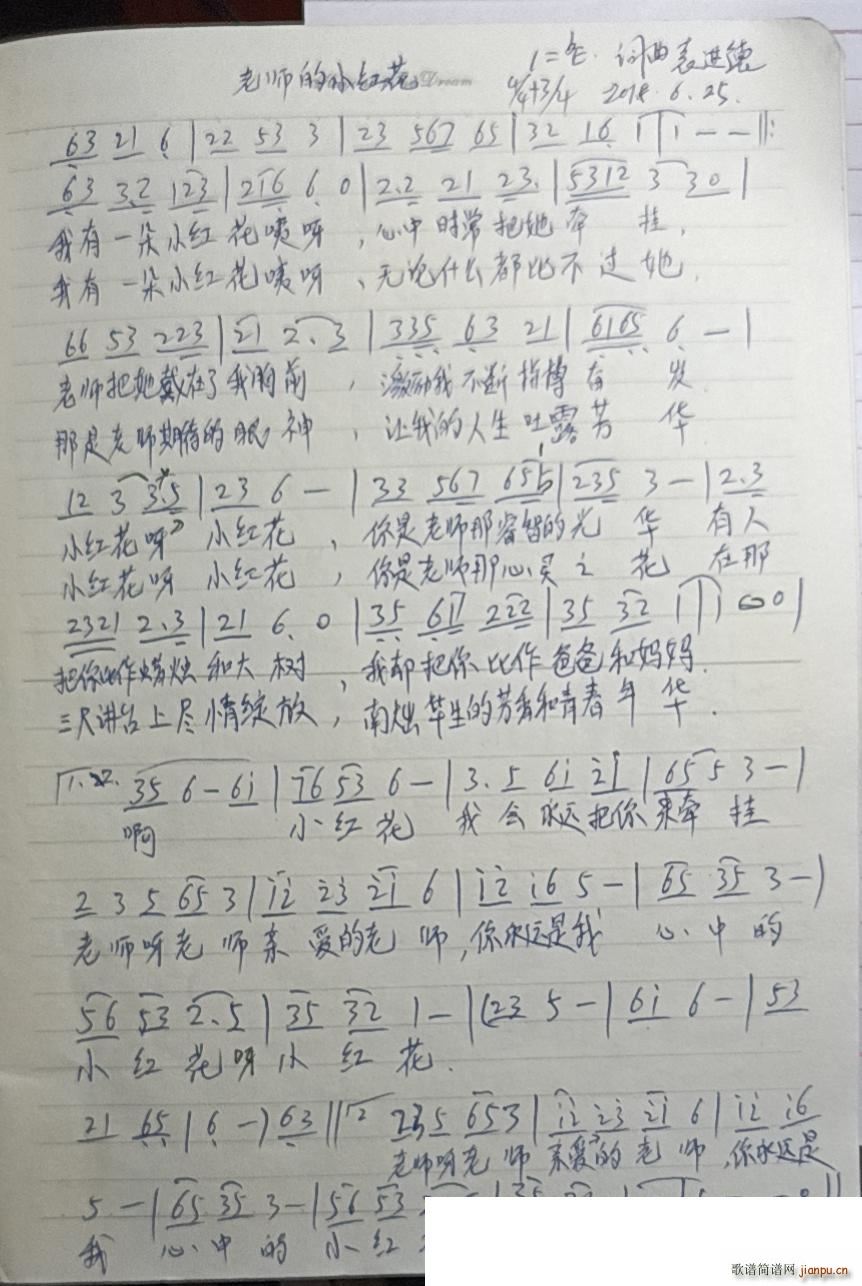 老师的小红花 Dream
1=bE 词曲 袁进德
4/4+3/4 2018.6.25.
63 21 6 | 22 53 3 | 23 567 65 | 32 16 1 | 1 - - ‖:
63 3.2 123 | 216 6 0 | 2.2 21 23. | 5312 3 30 |
我有一朵小红花咦呀,心中时常把她牵挂,
我有一朵小红花咦呀、无论什么都比不过她.
66 53 223 | 21 2.3 | 335 63 21 | 6165 6 - |
老师把她戴在了我胸前,激励我不断拼搏奋发.
那是老师期待的眼神,让我的人生吐露芳华
12 3 3.5 | 23 6 - | 33 567 655 | 235 3 - | 2.3
小红花呀 小红花,你是老师那睿智的光华 有人
小红花呀 小红花,你是老师那心灵之花 在那
2321 2.3 | 21 6. 0 | 35 617 222 | 35 32 1 | 1 00 |
把你比作蜡烛和大树,我却把你比作爸爸和妈妈.
三尺讲台上尽情绽放,毕生的芳香和青春年华.
1. 35 6 - 6i | 76 53 6 - | 3. 5 6i 2i | 65 5 3 - |
啊 小红花 我会永远把你来牵挂
2 3 5 65 3 | i2 23 2i 6 | i2 i6 5 - | 65 35 3 - |
老师呀老师亲爱的老师,你永远是我 心中的
56 53 2.5 | 35 32 1 - | (23 5 - | 6i 6 - | 53
小红花呀小红花.
21 65 | 6 - ) 63 ‖ 2 23 5 653 | i2 23 2i 6 | i2 i6
老师呀老师 亲爱的老师,你永远是
5 - | 65 35 3 - | 56 53
我 心中的 小红
歌谱简谱网 jianpu.cn